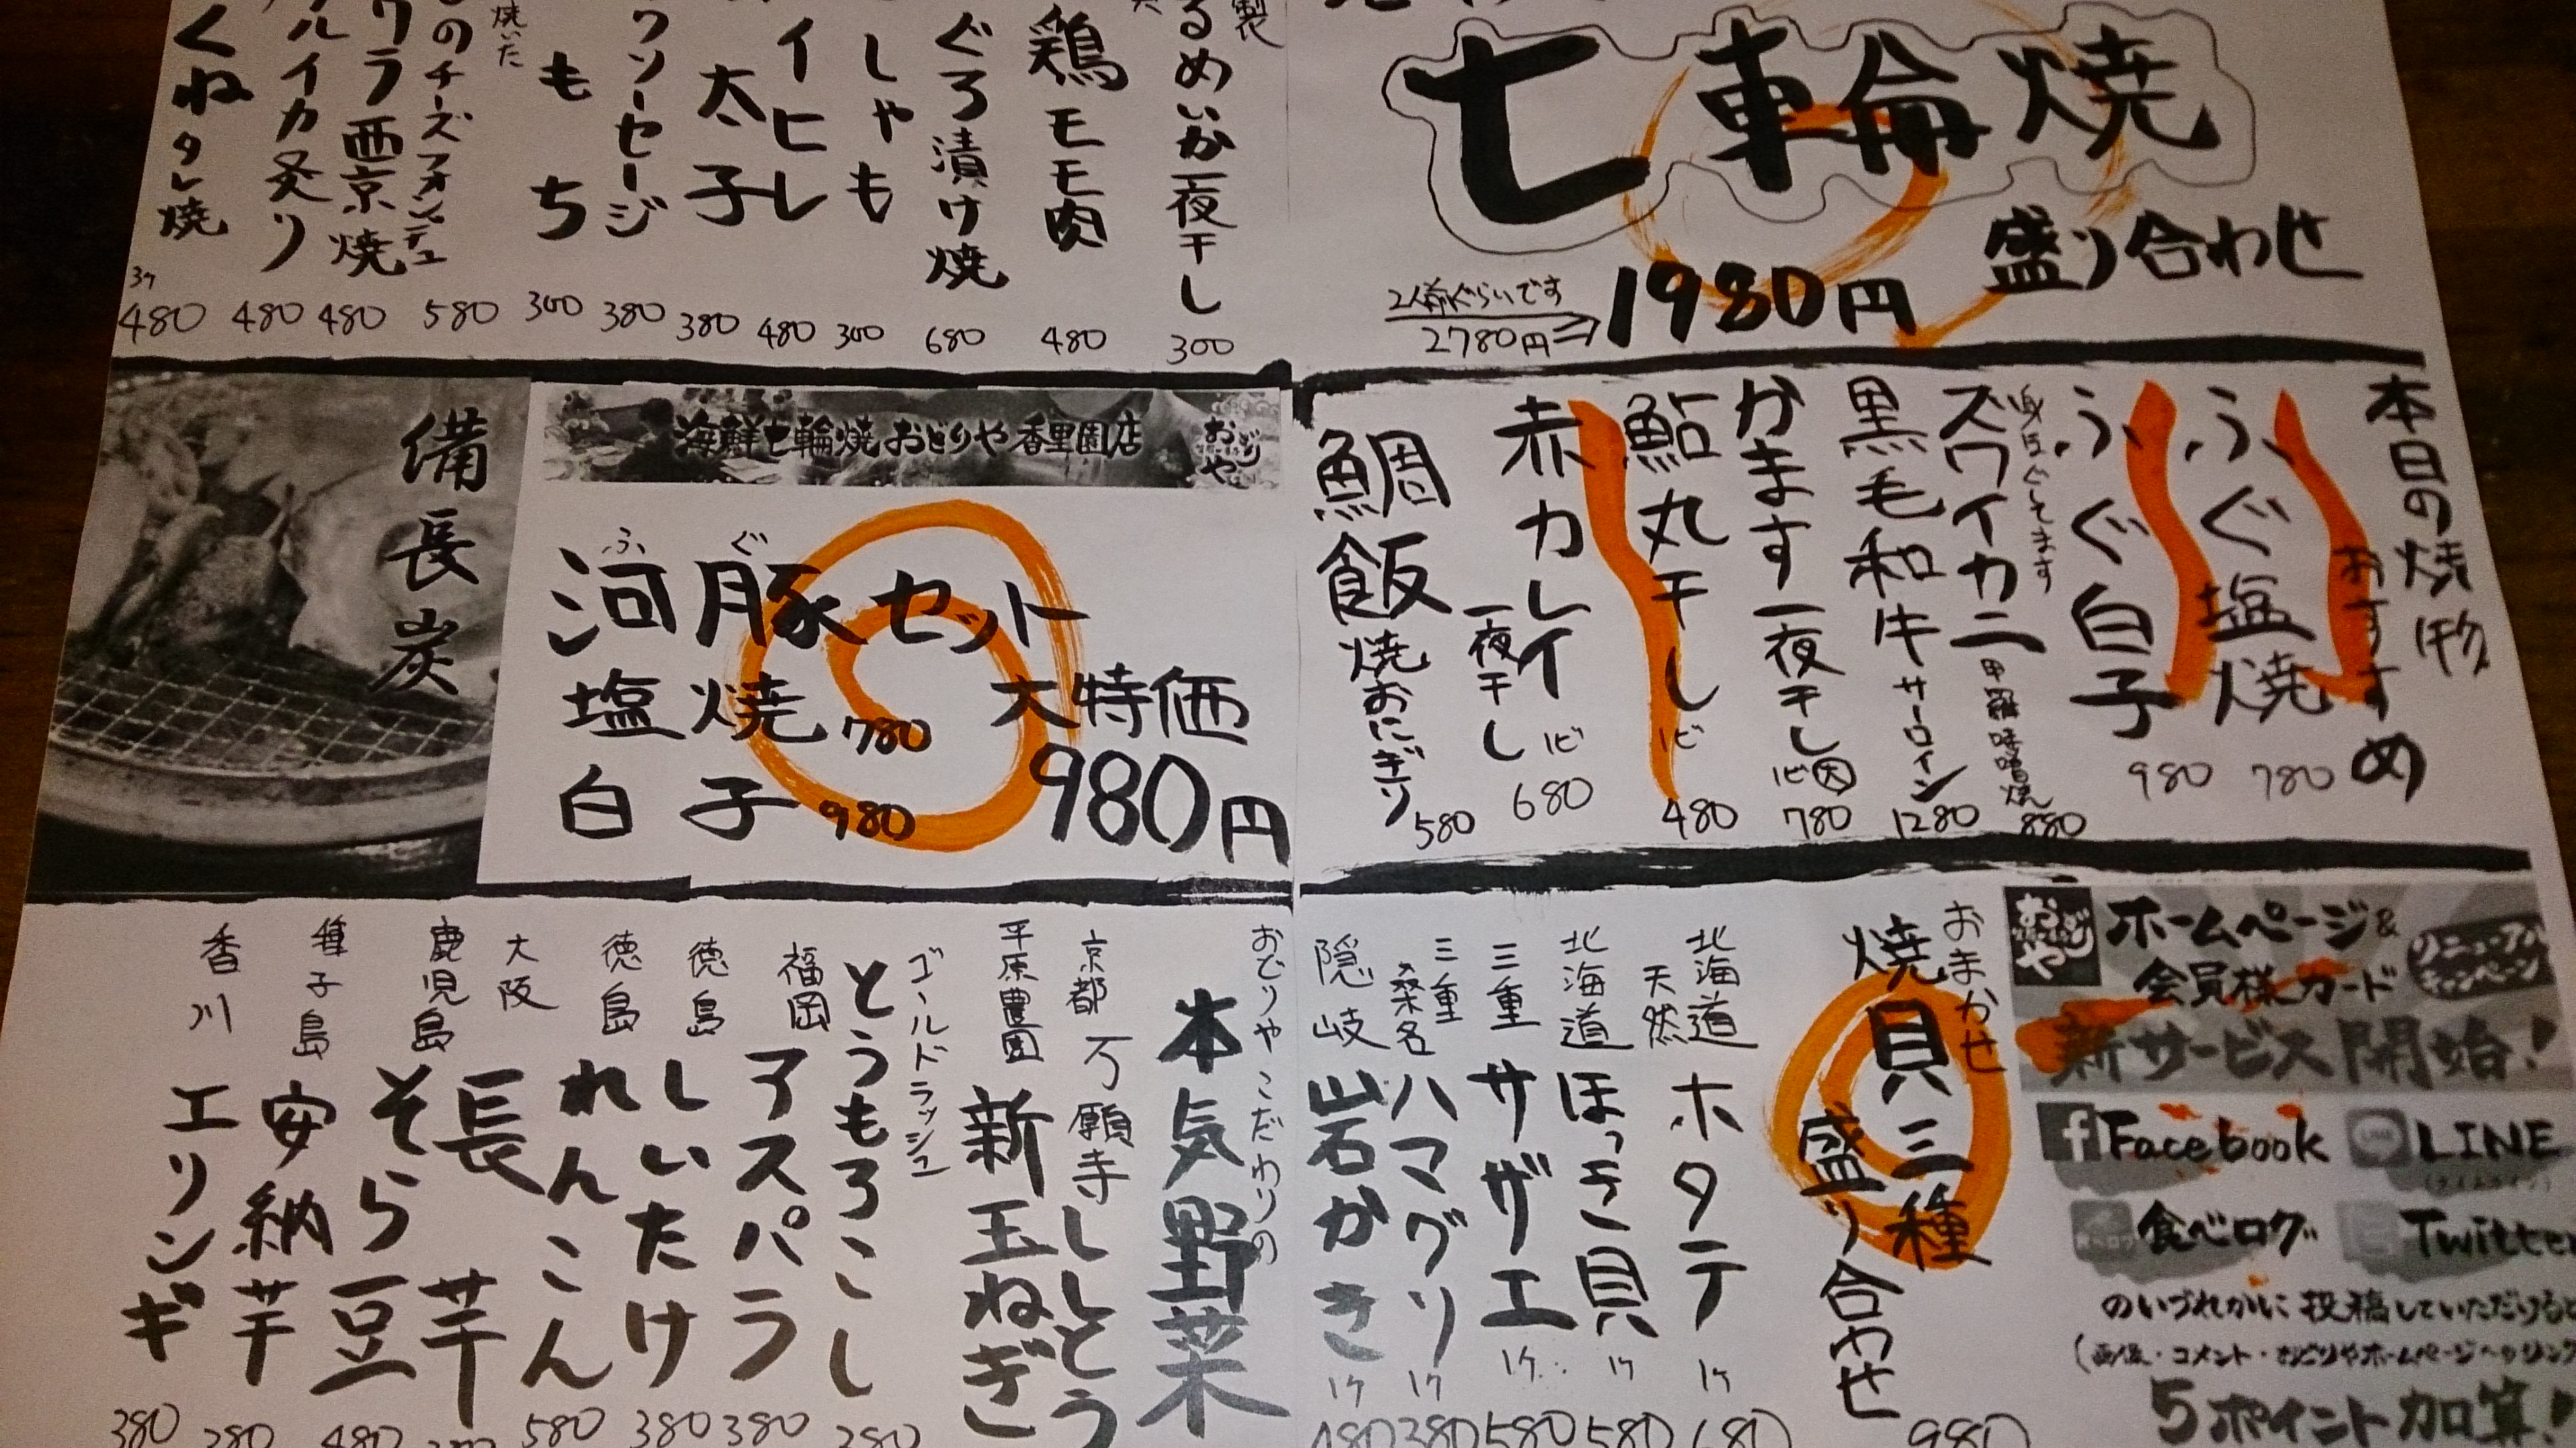 七輪焼
盛り合わせ
2人前ぐらいです
2780円⇒1980円
製
るめいか一夜干し
300
鶏モモ肉
480
ぐろ漬け焼
680
しゃも
300
イヒレ
480
太子
380
ソーセージ
380
もち
300
焼いた
のチーズフォンデュ
580
ワラ西京焼
480
ルイカ炙り
480
くねタレ焼
3ケ
480
本日の焼物
おすすめ
ふぐ塩焼
780
ふぐ白子
980
身ほぐしてます
ズワイカニ甲羅味噌焼
880
黒毛和牛サーロイン
1280
かます一夜干し
1ピ大
780
鮎丸干し
1ピ
480
赤カレイ
一夜干し
1ピ
680
鯛飯焼おにぎり
580
海鮮七輪焼おどりや香里園店
おどりや
備長炭
ふぐ
河豚セット
塩焼780
白子980
大特価
980円
おどりや
ホームページ&
会員様カード
新サービス開始!
Facebook
LINE
食べログ
Twitter
のいづれかに投稿していただける
5ポイント加算!
おまかせ
焼貝三種
盛り合わせ
980
北海道
天然
ホタテ
1ケ
680
北海道
ほっき貝
1ケ
580
三重
サザエ
1ケ
580
三重
桑名
ハマグリ
1ケ
380
隠岐
岩かき
1ケ
480
おどりやこだわりの
本気野菜
京都
万願寺ししとう
平原農園
新玉ねぎ
ゴールドラッシュ
とうもろこし
380
福岡
アスパラ
380
徳島
しいたけ
380
徳島
れんこん
580
大阪
長芋
鹿児島
そら豆
480
種子島
安納芋
380
香川
エリンギ
380